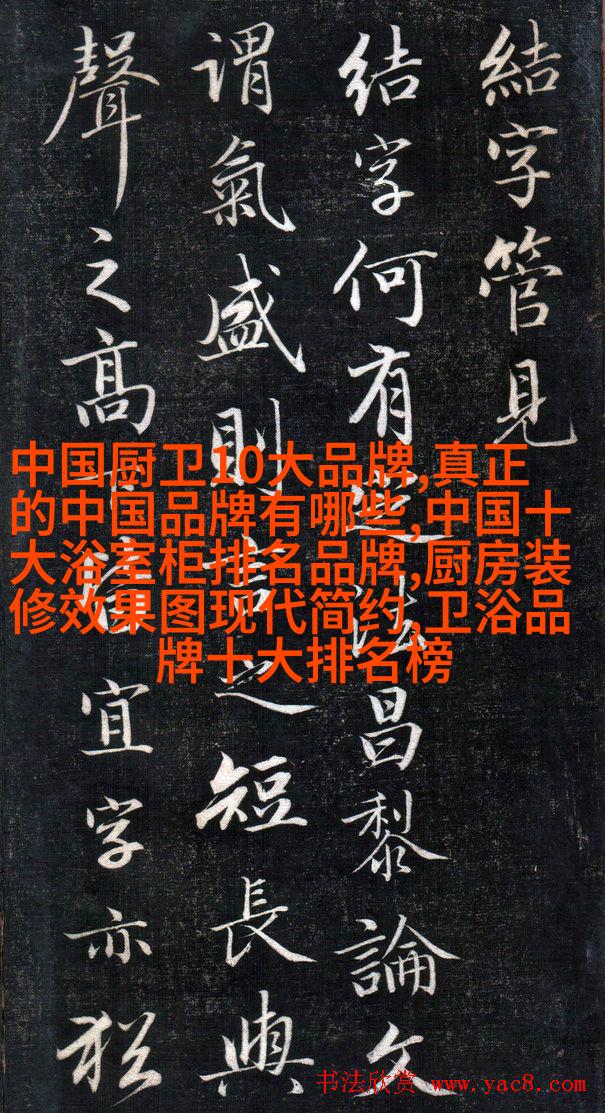 結字管見
结字何有法昌黎論文
謂氣盛則言之短長與
聲之高下皆宜字亦猶
中国厨卫10大品牌,真正
的中国品牌有哪些,中国十
大浴室柜排名品牌,厨房装
修效果图现代简约,卫浴品
牌十大排名榜
书法欣赏 www.yac8.com